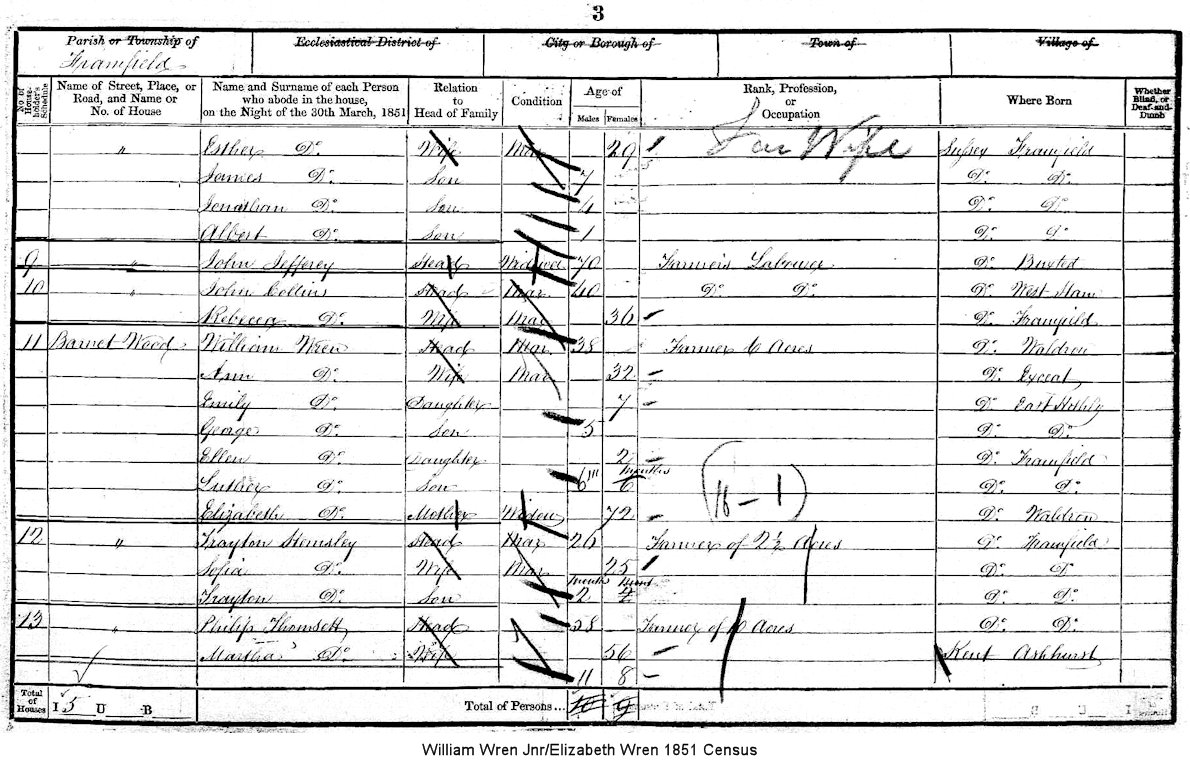 3
Parish or Township of Ecclesiastical District of City or Borough of Town of Village of
Framfield
No. of House-holder's Schedule Name of Street, Place, or Road, and Name or No. of House Name and Surname of each Person who abode in the house, on the Night of the 30th March, 1851 Relation to Head of Family Condition Age of Males Females Rank, Profession, or Occupation Where Born Whether Blind, or Deaf-and-Dumb
" Esther Do. Wife Mar 29 Wife Sussex Framfield
James Do. Son 7 Do. Do.
Jonathan Do. Son 4 Do. Do.
Albert Do. Son 1 Do. Do.
9 " John Jefferey Head Widower 70 Farmer's Labourer Do. Buxted
10 " John Collins Head Mar 40 Do. Do. Do. West Ham
Rebecca Do. Wife Mar 36 Do. Framfield
11 Barnet Wood William Wren Head Mar 38 Farmer 6 Acres Do. Waldron
Ann Do. Wife Mar 32 Do. Exceat
Emily Do. Daughter 7 Do. East Hothly
George Do. Son 5 Do. Do.
Ellen Do. Daughter 2 Do. Framfield
Luther Do. Son 6m months 6 Do. Do.
Elizabeth Do. Mother Widow 72 Do. Waldron
12 " Trayton Hemsley Head Mar 26 Farmer of 2½ Acres Do. Framfield
Sofia Do. Wife Mar 25 Do. Do.
Trayton Do. Son 2 Do. Do.
13 " Philip Thomsett Head 58 Farmer of 6 Acres Do. Do.
Martha Do. Wife 56 Kent Ashhurst
11 8
Total of Houses I 5 U B Total of Persons... 9
William Wren Jnr/Elizabeth Wren 1851 Census